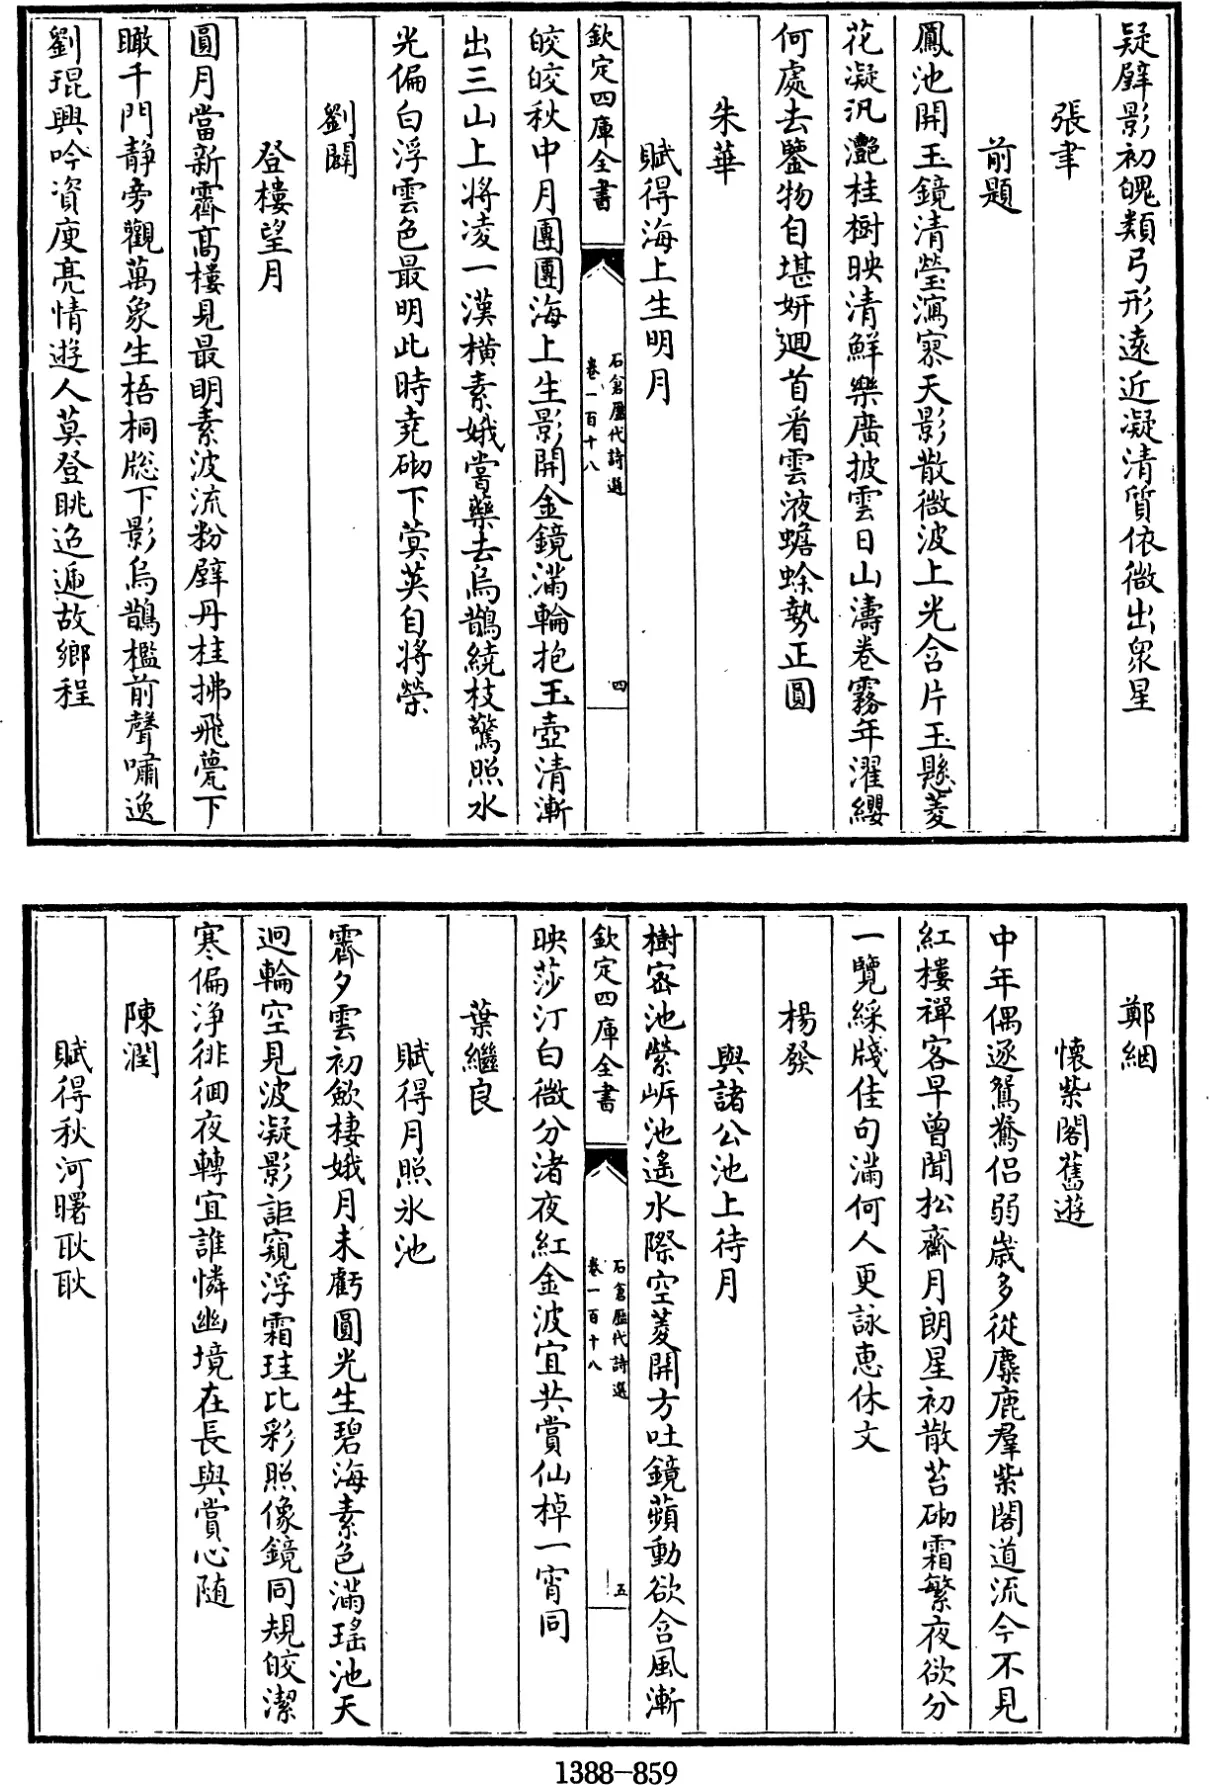 疑壁影初魄類弓形遠近凝清質依微出衆星
張聿
前題
鳳池開玉鏡清瑩瀉寥天影散微波上光含片玉懸菱
花凝汎灧桂樹映清鮮樂廣披雲日山濤卷霧年濯纓
何處去鑒物自堪妍廻首看雲液蟾蜍勢正圓
朱華
賦得海上生明月
欽定四庫全書
石倉歷代詩選
卷一百十八
四
皎皎秋中月團團海上生影開金鏡滿輪抱玉壺清漸
出三山上將凌一漢橫素娥嘗藥去烏鵲繞枝驚照水
光偏白浮雲色最明此時堯砌下蓂莢自將榮
劉闢
登樓望月
圓月當新霽髙樓見最明素波流粉壁丹桂拂飛甍下
瞰千門靜旁觀萬象生梧桐牕下影烏鵲檻前聲嘯逸
劉琨興吟資庾亮情遊人莫登眺迢遞故鄉程
鄭絪
懷紫閣舊遊
中年偶逐鴛鷺侣弱嵗多從麋鹿羣紫閣道流今不見
紅樓禪客早曾聞松齋月朗星初散苔砌霜繁夜欲分
一覽綵牋佳句滿何人更詠惠休文
楊發
與諸公池上待月
樹宻池縈岍池遙水際空菱開方吐鏡蘋動欲含風漸
欽定四庫全書
石倉歷代詩選
卷一百十八
五
映莎汀白微分渚夜紅金波宜共賞仙棹一宵同
葉繼良
賦得月照氷池
霽夕雲初歛棲娥月未虧圓光生碧海素色滿瑤池天
迥輪空見波凝影詎窺浮霜珪比彩照像鏡同規皎潔
寒偏淨徘徊夜轉宜誰憐幽境在長與賞心随
陳潤
賦得秋河曙耿耿
1388—859